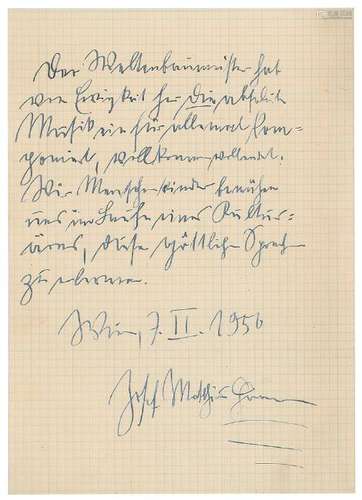 Der Weltenbaumeister hat
von Ewigkeit her die absolute
Musik ein für allemal kom-
poniert, vollkommen vollendet.
Wir Menschenkinder bemühen
uns im Laufe eines Kultur-
äons, diese göttliche Sprache
zu erlernen.
Wien, 7. II. 1956
Josef Matthias Hauer